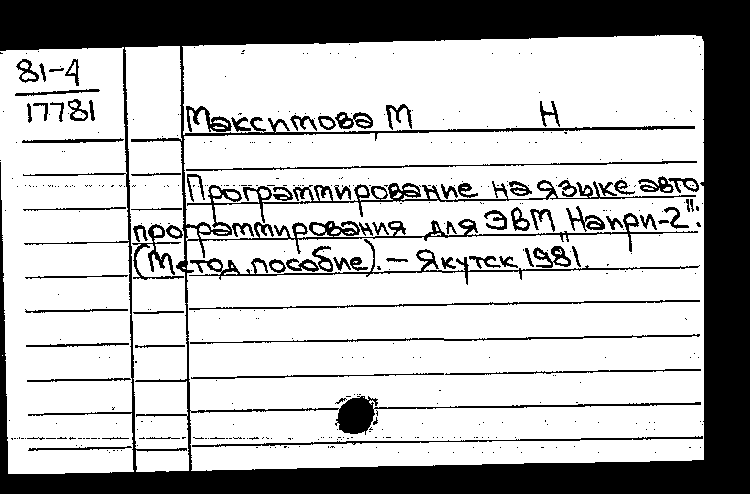 81-4
17781
Максимова, М Н
Программирование на языке авто-
программирования для ЭВМ „Наири-2":
(Метод. пособие). - Якутск, 1981.